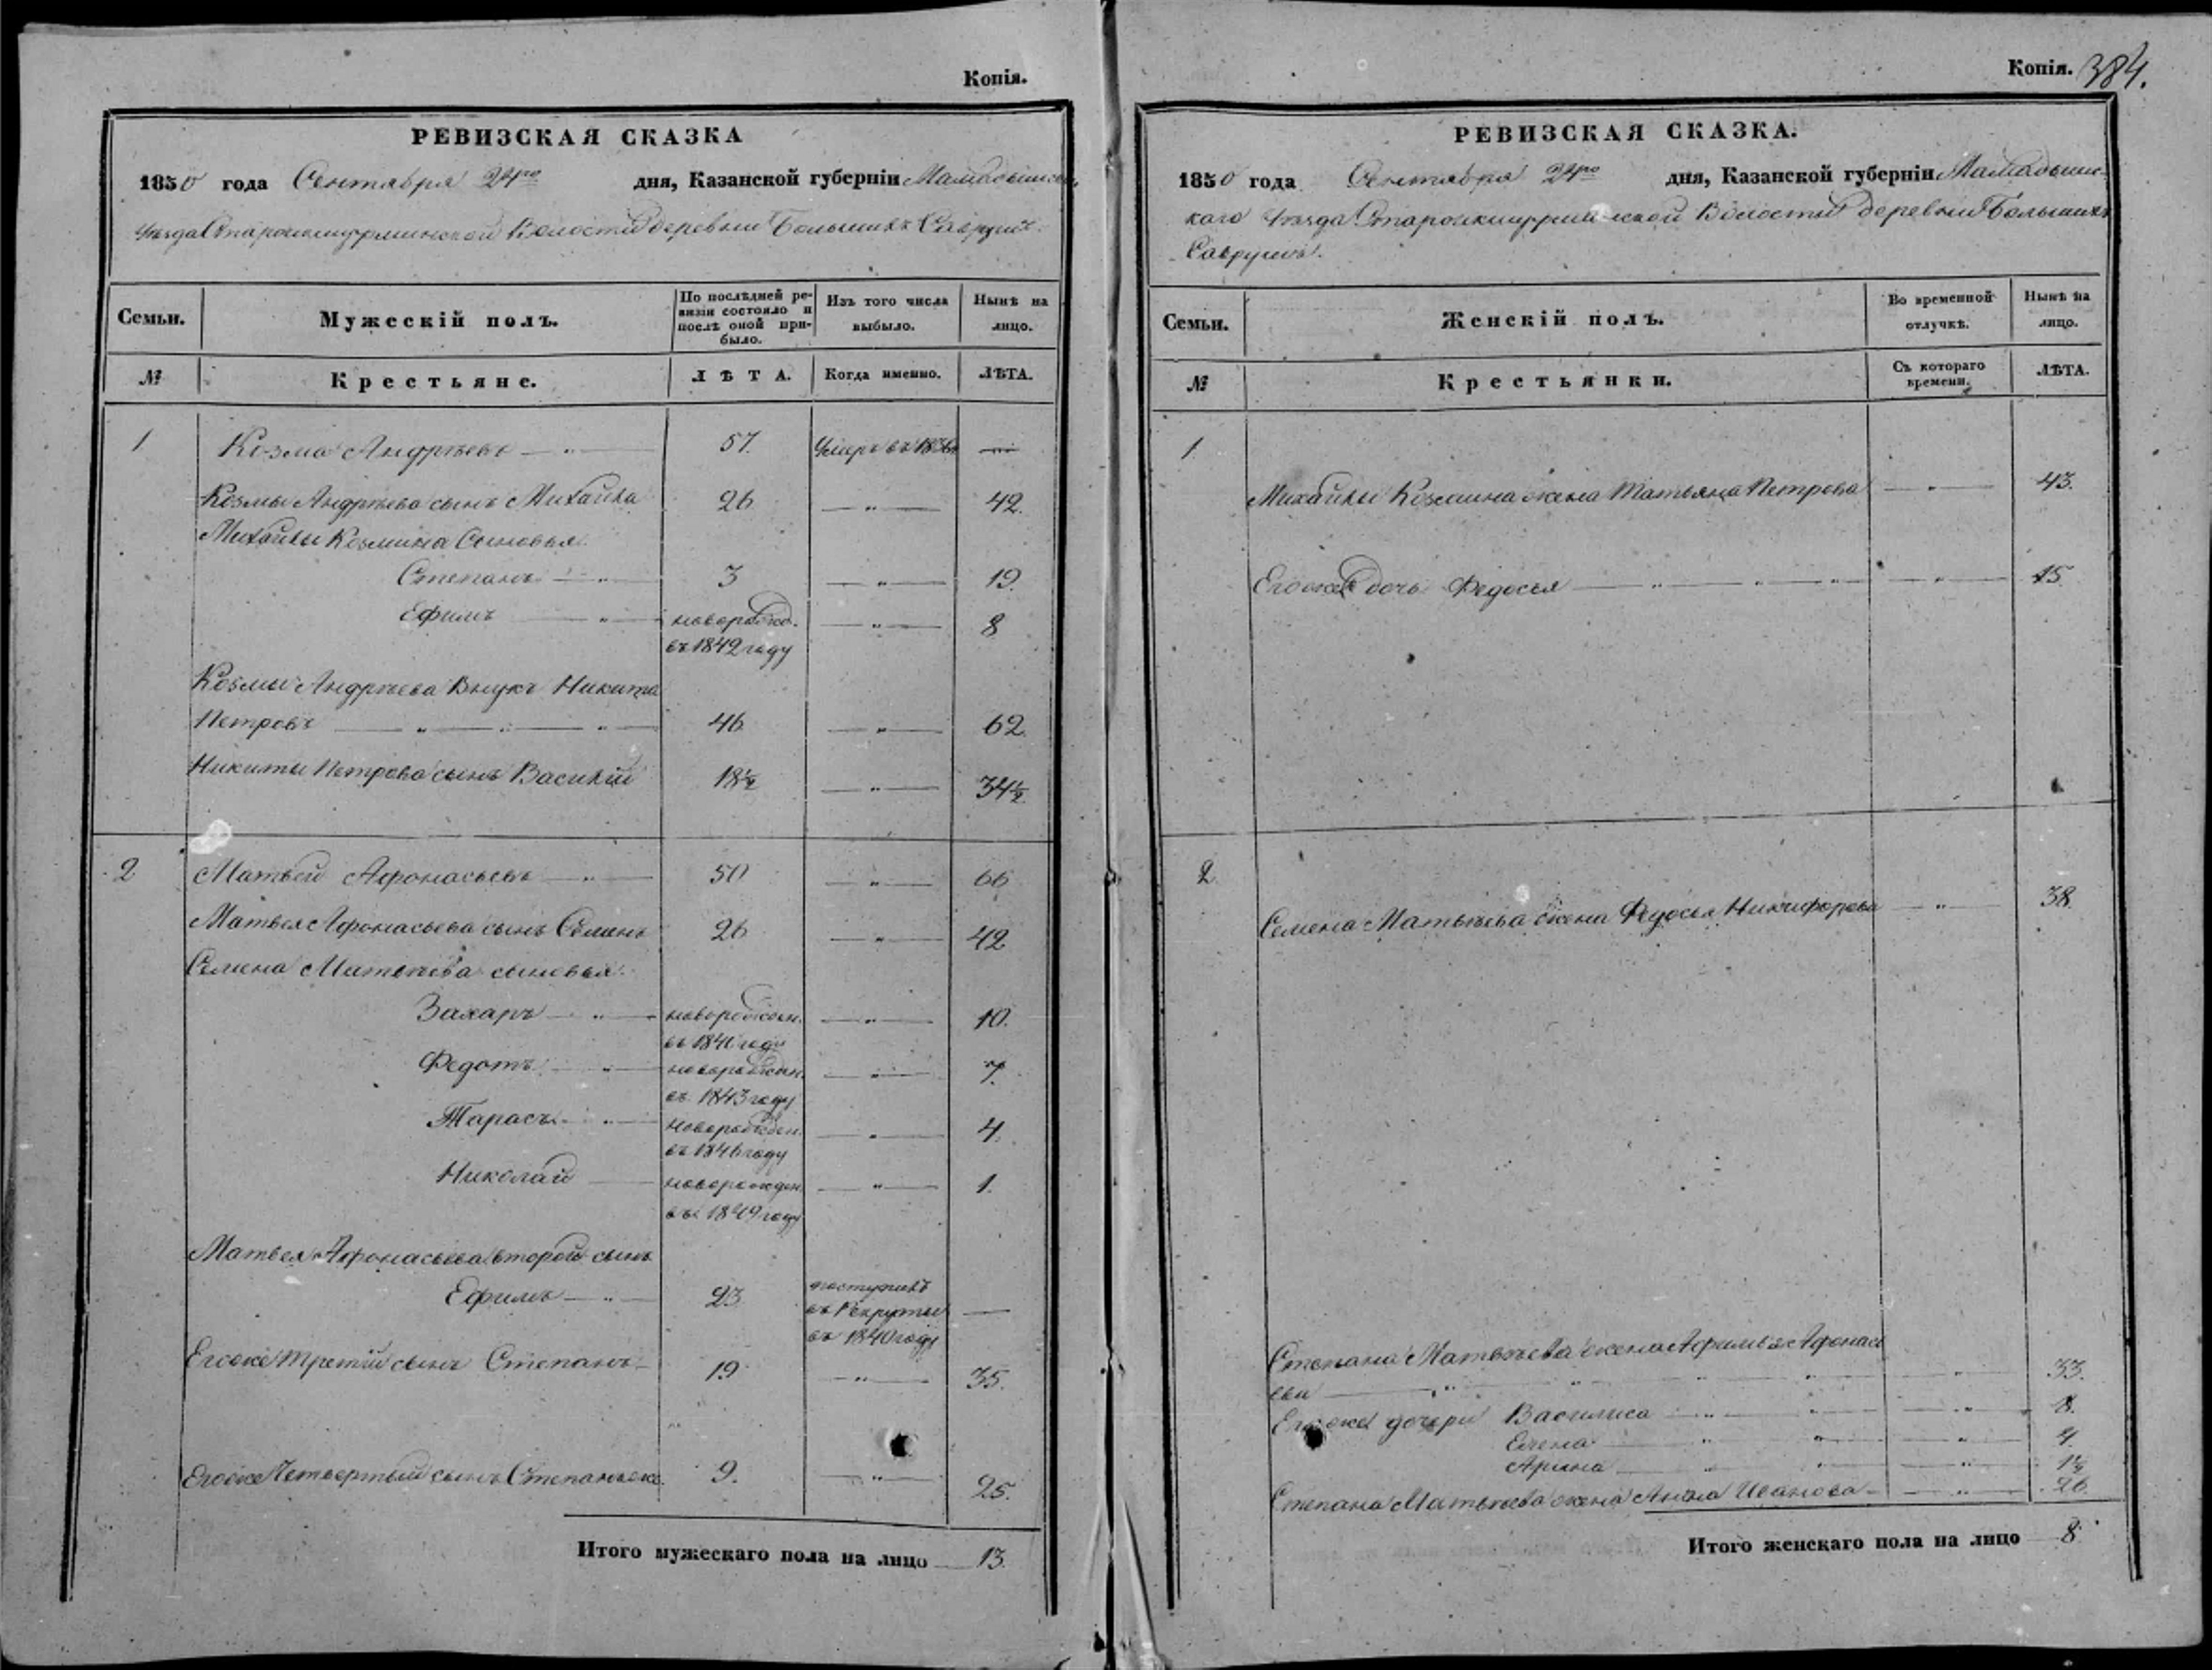 Копія.
РЕВИЗСКАЯ СКАЗКА
1850 года Сентября 24го дня, Казанской губерніи
Уѣзда Волости деревни Большихъ
Семьи. Мужескій полъ. По послѣдней ревизіи состояло и послѣ оной прибыло. Изъ того числа выбыло. Нынѣ на лицо.
№ Крестьяне. ЛѢТА. Когда именно. ЛѢТА.
1 Козма Андрѣевъ 57. Умеръ въ —
Козмы Андрѣева сынъ Михайла 26 — " — 42.
Михайлы Козмина Сыновья
Степанъ 3 — " — 19.
Ефимъ новорожд. — " — 8
въ 1842 году
Козмы Андрѣева Внукъ Никита
Петровъ 46 — " — 62.
Никиты Петрова сынъ Василій 18½ — " — 34½.
2 Матвей Афонасьевъ 50 — " — 66
Матвея Афонасьева сынъ Семенъ 26 — " — 42
Семена Матвѣева сыновья.
Захаръ новорожден. — " — 10.
въ 1840 году
Федотъ новорожден. — " — 7.
въ 1843 году
Тарасъ новорожден. — " — 4.
въ 1846 году
Николай новорожден. — " — 1.
въ 1849 году
Матвея Афонасьева второй сынъ
Ефимъ 23 поступилъ
въ Рекруты —
въ 1840 году
Егоже третій сынъ Степанъ 19 — " — 35.
Егоже Четвертый сынъ Степанъ же 9. — " — 25.
Итого мужескаго пола на лицо 13.
Копія. 384.
РЕВИЗСКАЯ СКАЗКА.
1850 года Сентября 24го дня, Казанской губерніи Мамадышс-
каго Уѣзда Волости деревни Большихъ
Савруш
Семьи. Женскій полъ. Во временной отлучкѣ. Нынѣ на лицо.
№ Крестьянки. Съ котораго времени. ЛѢТА.
1
Михайлы Козмина жена Татьяна Петрова — " — 43.
Егоже дочь Федосья — " — 15
2
Семена Матвѣева жена Федосья Никифорова — " — 38.
Степана Матвѣева жена Афимья Афонась
ева — " — 33.
Егоже дочери Василиса — " — 8.
Елена — " — 4.
Арина — " — 1½
Степана Матвѣева жена Анна Иванова — " — 26.
Итого женскаго пола на лицо 8.